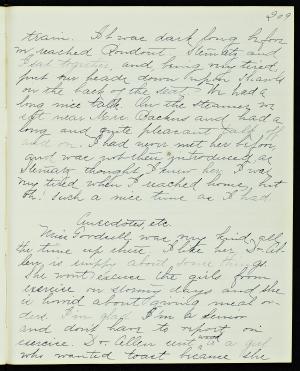 309
train. It was dark long before
we reached Rondout. Stematz and
I sat together, and being very tired
put our heads down upon shawls
on the back of the seat. We had a
long nice talk. On the Steamer we
sat near Miss Packens and had a
long and quite pleasant talk off
and on. I had never met her before
and was not then introduced as
Stematz thought I knew her. I was
very tired when I reached home, but
Oh! Such a nice time as I had.
Anecdotes, etc.
Miss Goodsell was very kind all
the time up there. I like her. Dr. Al-
len, is empty about some things.
She wont excuse the girls from
exercise on stormy days and she
is horrid about giving meal or-
ders. I'm glad I'm a Senior
and dont have to report on
exercise. Dr. Allen sent word to a girl
who wanted toast because she